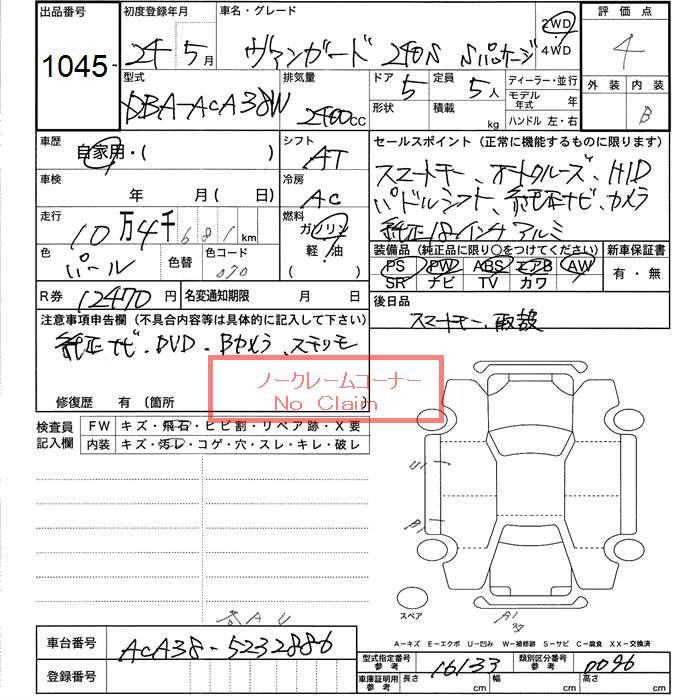 出品番号 初度登録年月 車名・グレード 2WD 評価点
1045- 24 5月 ヴァンガード 240S Sパッケージ 4WD 4
型式 排気量 ドア 定員 ディーラー・並行 外装 内装
DBA-ACA38W 2400cc 5 5人 モデル年式 年 B
形状 積載 kg ハンドル 左・右
車歴 シフト セールスポイント (正常に機能するものに限ります)
自家用・( ) AT スマートキー、オートクルーズ、HID
車検 冷房 パドルシフト、純正ナビ、カメラ
年 月( 日) AC 純正18インチアルミ
走行 燃料 装備品 (純正品に限り○をつけてください) 新車保証書
10万4千681km ガソリン PS PWD ABS エアB AW 有・無
色 色替 色コード 軽・油 SR ナビ TV カワ
パール 070 ( )
R券 12470円 名変通知期限 月 日 後日品
注意事項申告欄 (不具合内容等は具体的に記入して下さい) スマートキー、取説
純正ナビ、DVD、Bカメラ、
ノークレームコーナー
No Claim
修復歴 有 (箇所
検査員 FW キズ・飛石・ヒビ割・リペア跡・X要
記入欄 内装 キズ・汚レ・コゲ・穴・スレ・キレ・破レ
U1
A1
スペア
A1
A-キズ E-エクボ U-凹み W-補修跡 S-サビ C-腐食 XX-交換済
車台番号 ACA38-5232886 型式指定番号 参考 16133 類別区分番号 参考 0096
登録番号 車庫証明用 参考 長さ cm 幅 cm 高さ cm